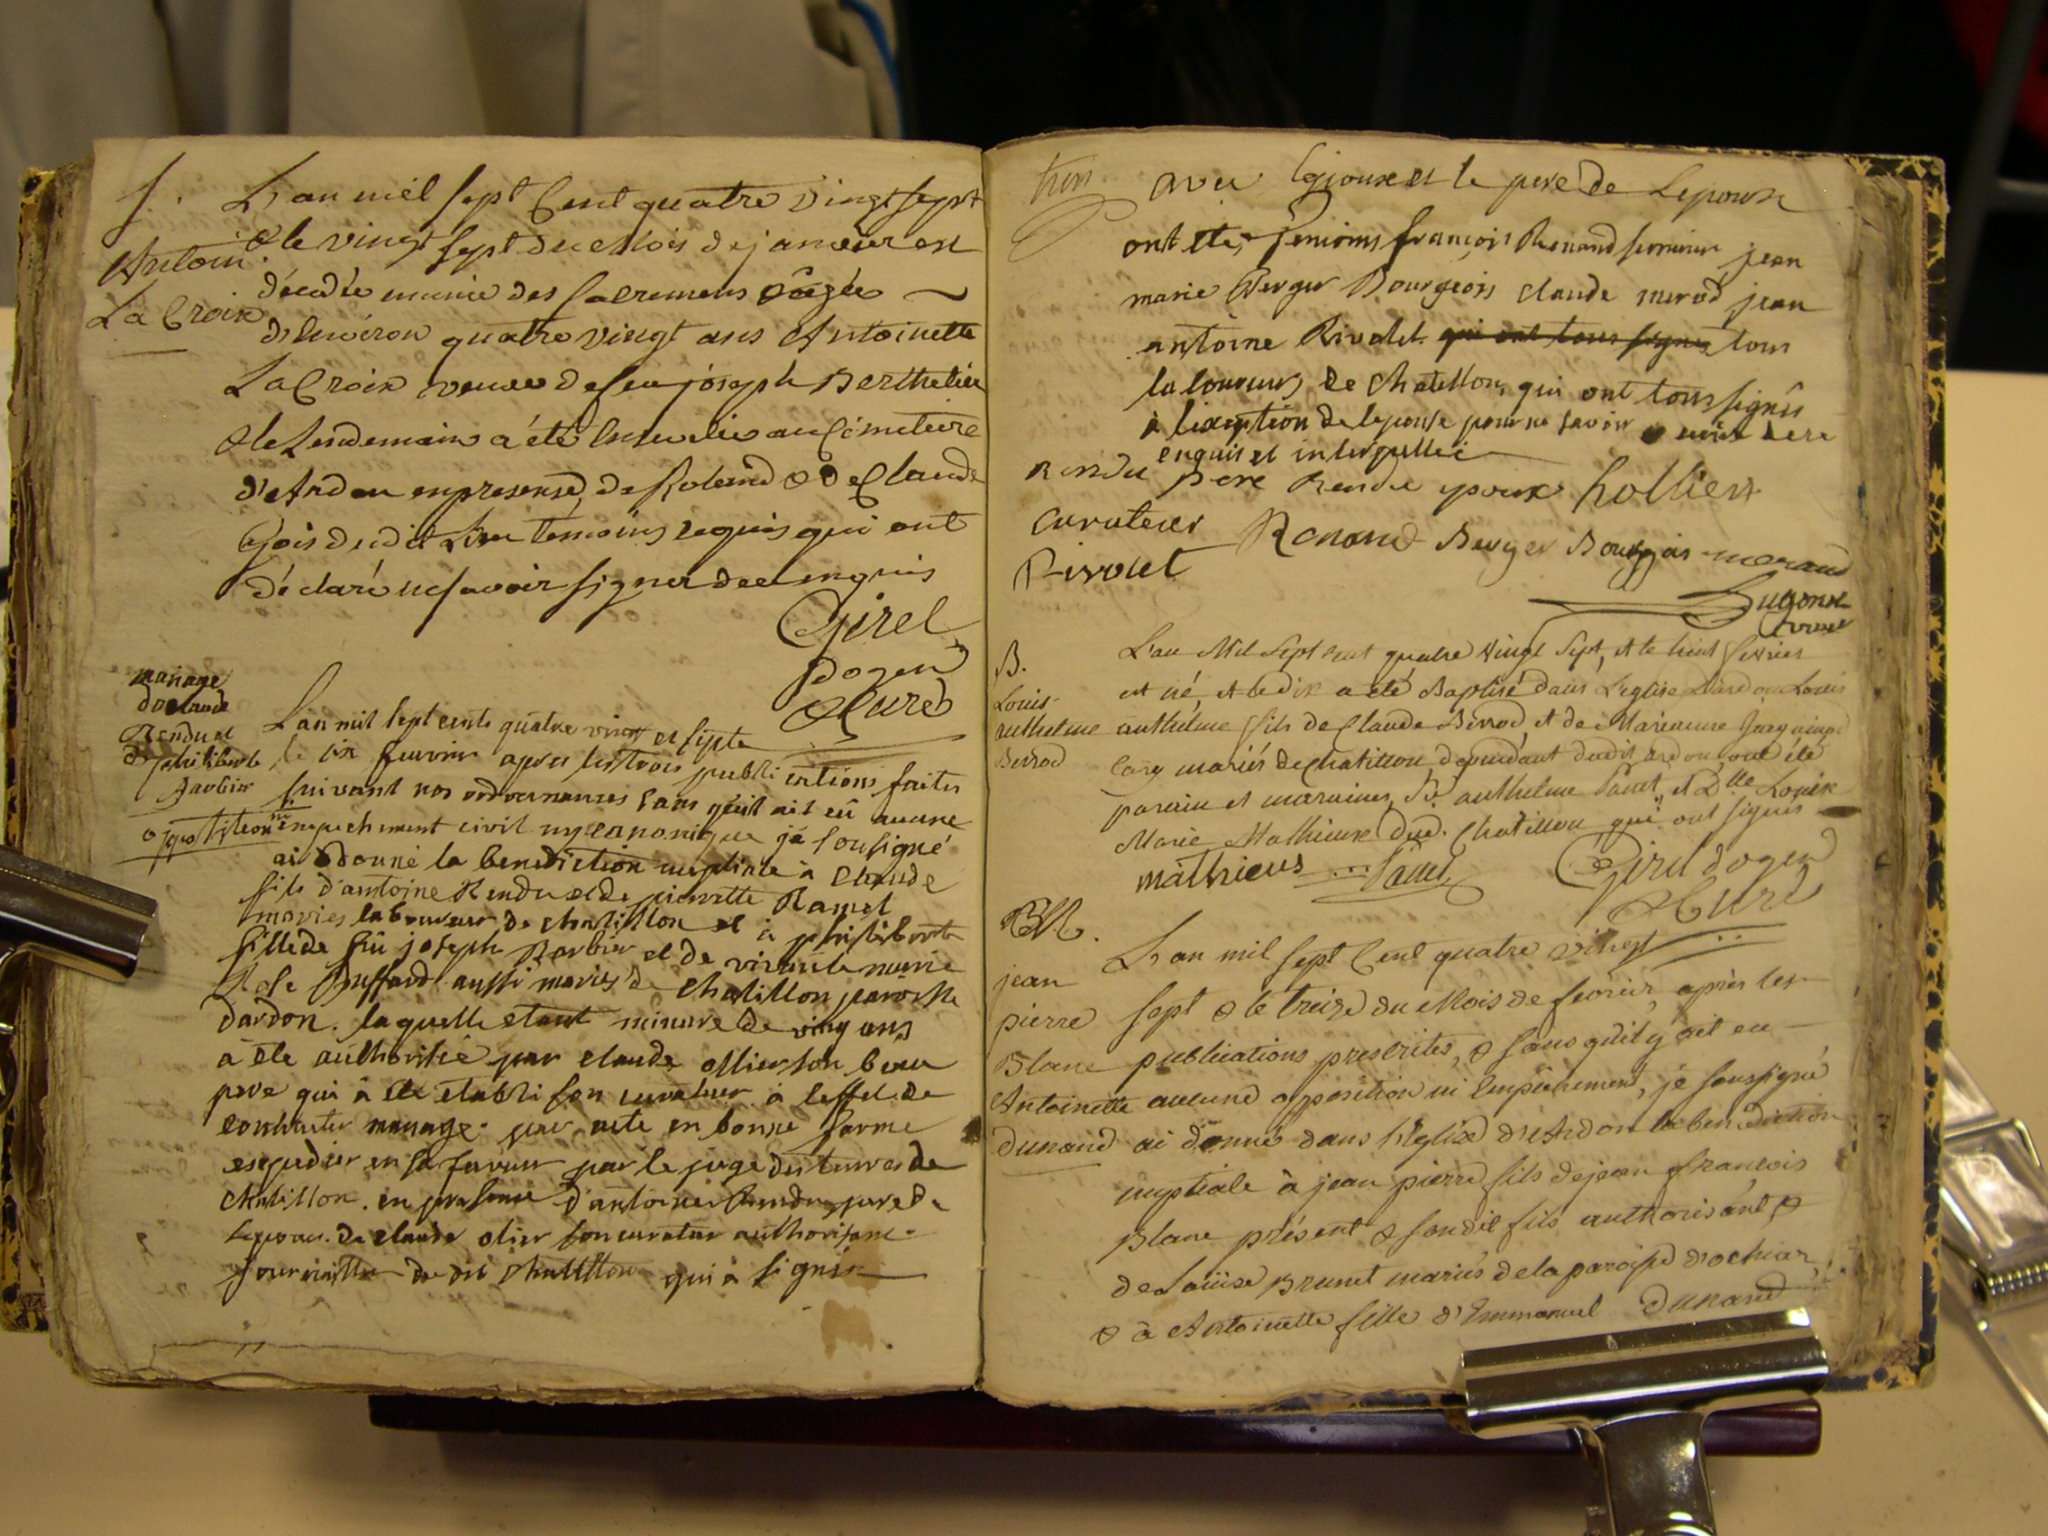 S.
Antoin.
La Croix
L'an mil sept Cent quatre vingt sept
& le vingt sept du Mois de janvier est
décédée munie des Sacremens âgée
d'Environ quatre vingt ans Antoinette
La Croix veuve de feu joseph Berthelier
& le Lendemain a été Ensevelie au Cimetiere
d'Ardon en presense de Rolend & de Claude
Gois dudit Lieu temoins requis qui ont
déclaré ne savoir signer de ce enquis
Girel
Doyen
& Curé
mariage
de claude
Rendu et
philiberte
barbier
opposition
L'an mil sept cents quatre vingt et septe
le six fevrier apres les trois publications faites
suivant nos ordonnances sans qu'il ait eû aucune
empechement civil ny canonique je sousigné
ai donné la benediction nuptiale à Claude
fils d'antoine Rendu et de pierrette Ramel
maries laboureur de chatillon et à philiberte
fille de feû joseph Barbier et de vivante marie
Buffard aussi mariés de chatillon paroisse
dardon. laquelle etant minure de ving ans
à été authorisé par claude ollier son beau
pere qui à été établi son curateur à leffet de
contracter mariage par acte en bonne forme
expedier en sa faveur par le juge des terres de
chatillon. en presence d'antoine Rendu pere de
lepoux. de claude olier son curateur authorisant
du dit chatillon qui à signé
avec lepoux et le pere de Lepoux
ont été temoins françois Renand jean
marie Berger Bourgeois claude merod jean
antoine Rivolet. qui ont tous signes tous
laboureurs de Chatillon, qui ont tous signés
à lexeption de lepouse pour ne savoir ecrire de ce
enquis et interpellée
Rendu pere Rendu epoux hollier
curateur Renand Berger Bourgois morand
Rivolet
B.
Louis
authelme
Berrod
L'an Mil Sept cent quatre vingt Sept, et le huit fevrier
est né, et le dix a été Baptisé dans L'eglise d'ardon Louis
authelme fils de Claude Berrod et de
mariés de chatillon dependant dudit ardon ont été
parain et maraine, Sr. authelme Paul et Dlle Louise
Marie Mathieux dud. Chatillon qui ont signés
mathieus Paul Girel doyen
& Curé
jean
pierre
Blanc
Antoinette
Dunand
L'an mil sept Cent quatre vingt
sept & le treize du Mois de fevrier, après les
publications prescrites, & sans qu'il y ait eu
aucune opposition ni Empêchement, je soussigné
ai donné dans l'Eglise d'Ardon la benediction
nuptiale à jean pierre fils de jean françois
Blanc présent & son dit fils authorisant &
de Loüise Brunet mariés de la paroisse d'ochiaz,
& à Antoinette fille d'Emmanuel Dunand